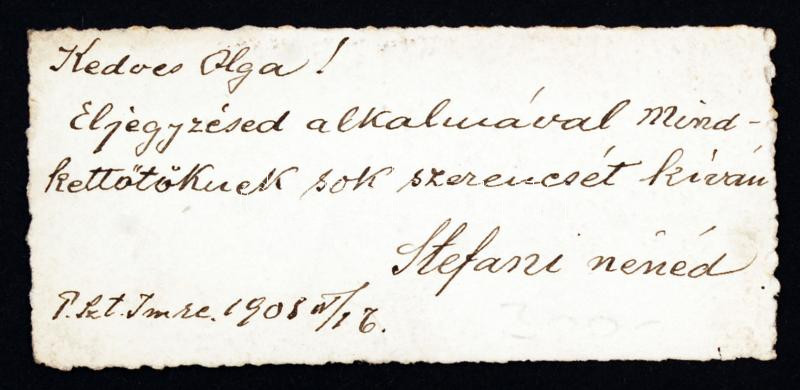 Kedves Olga!
Eljegyzésed alkalmával mind-
kettőtöknek sok szerencsét kíván
Stefani nénéd
P.Szt.Imre. 1908